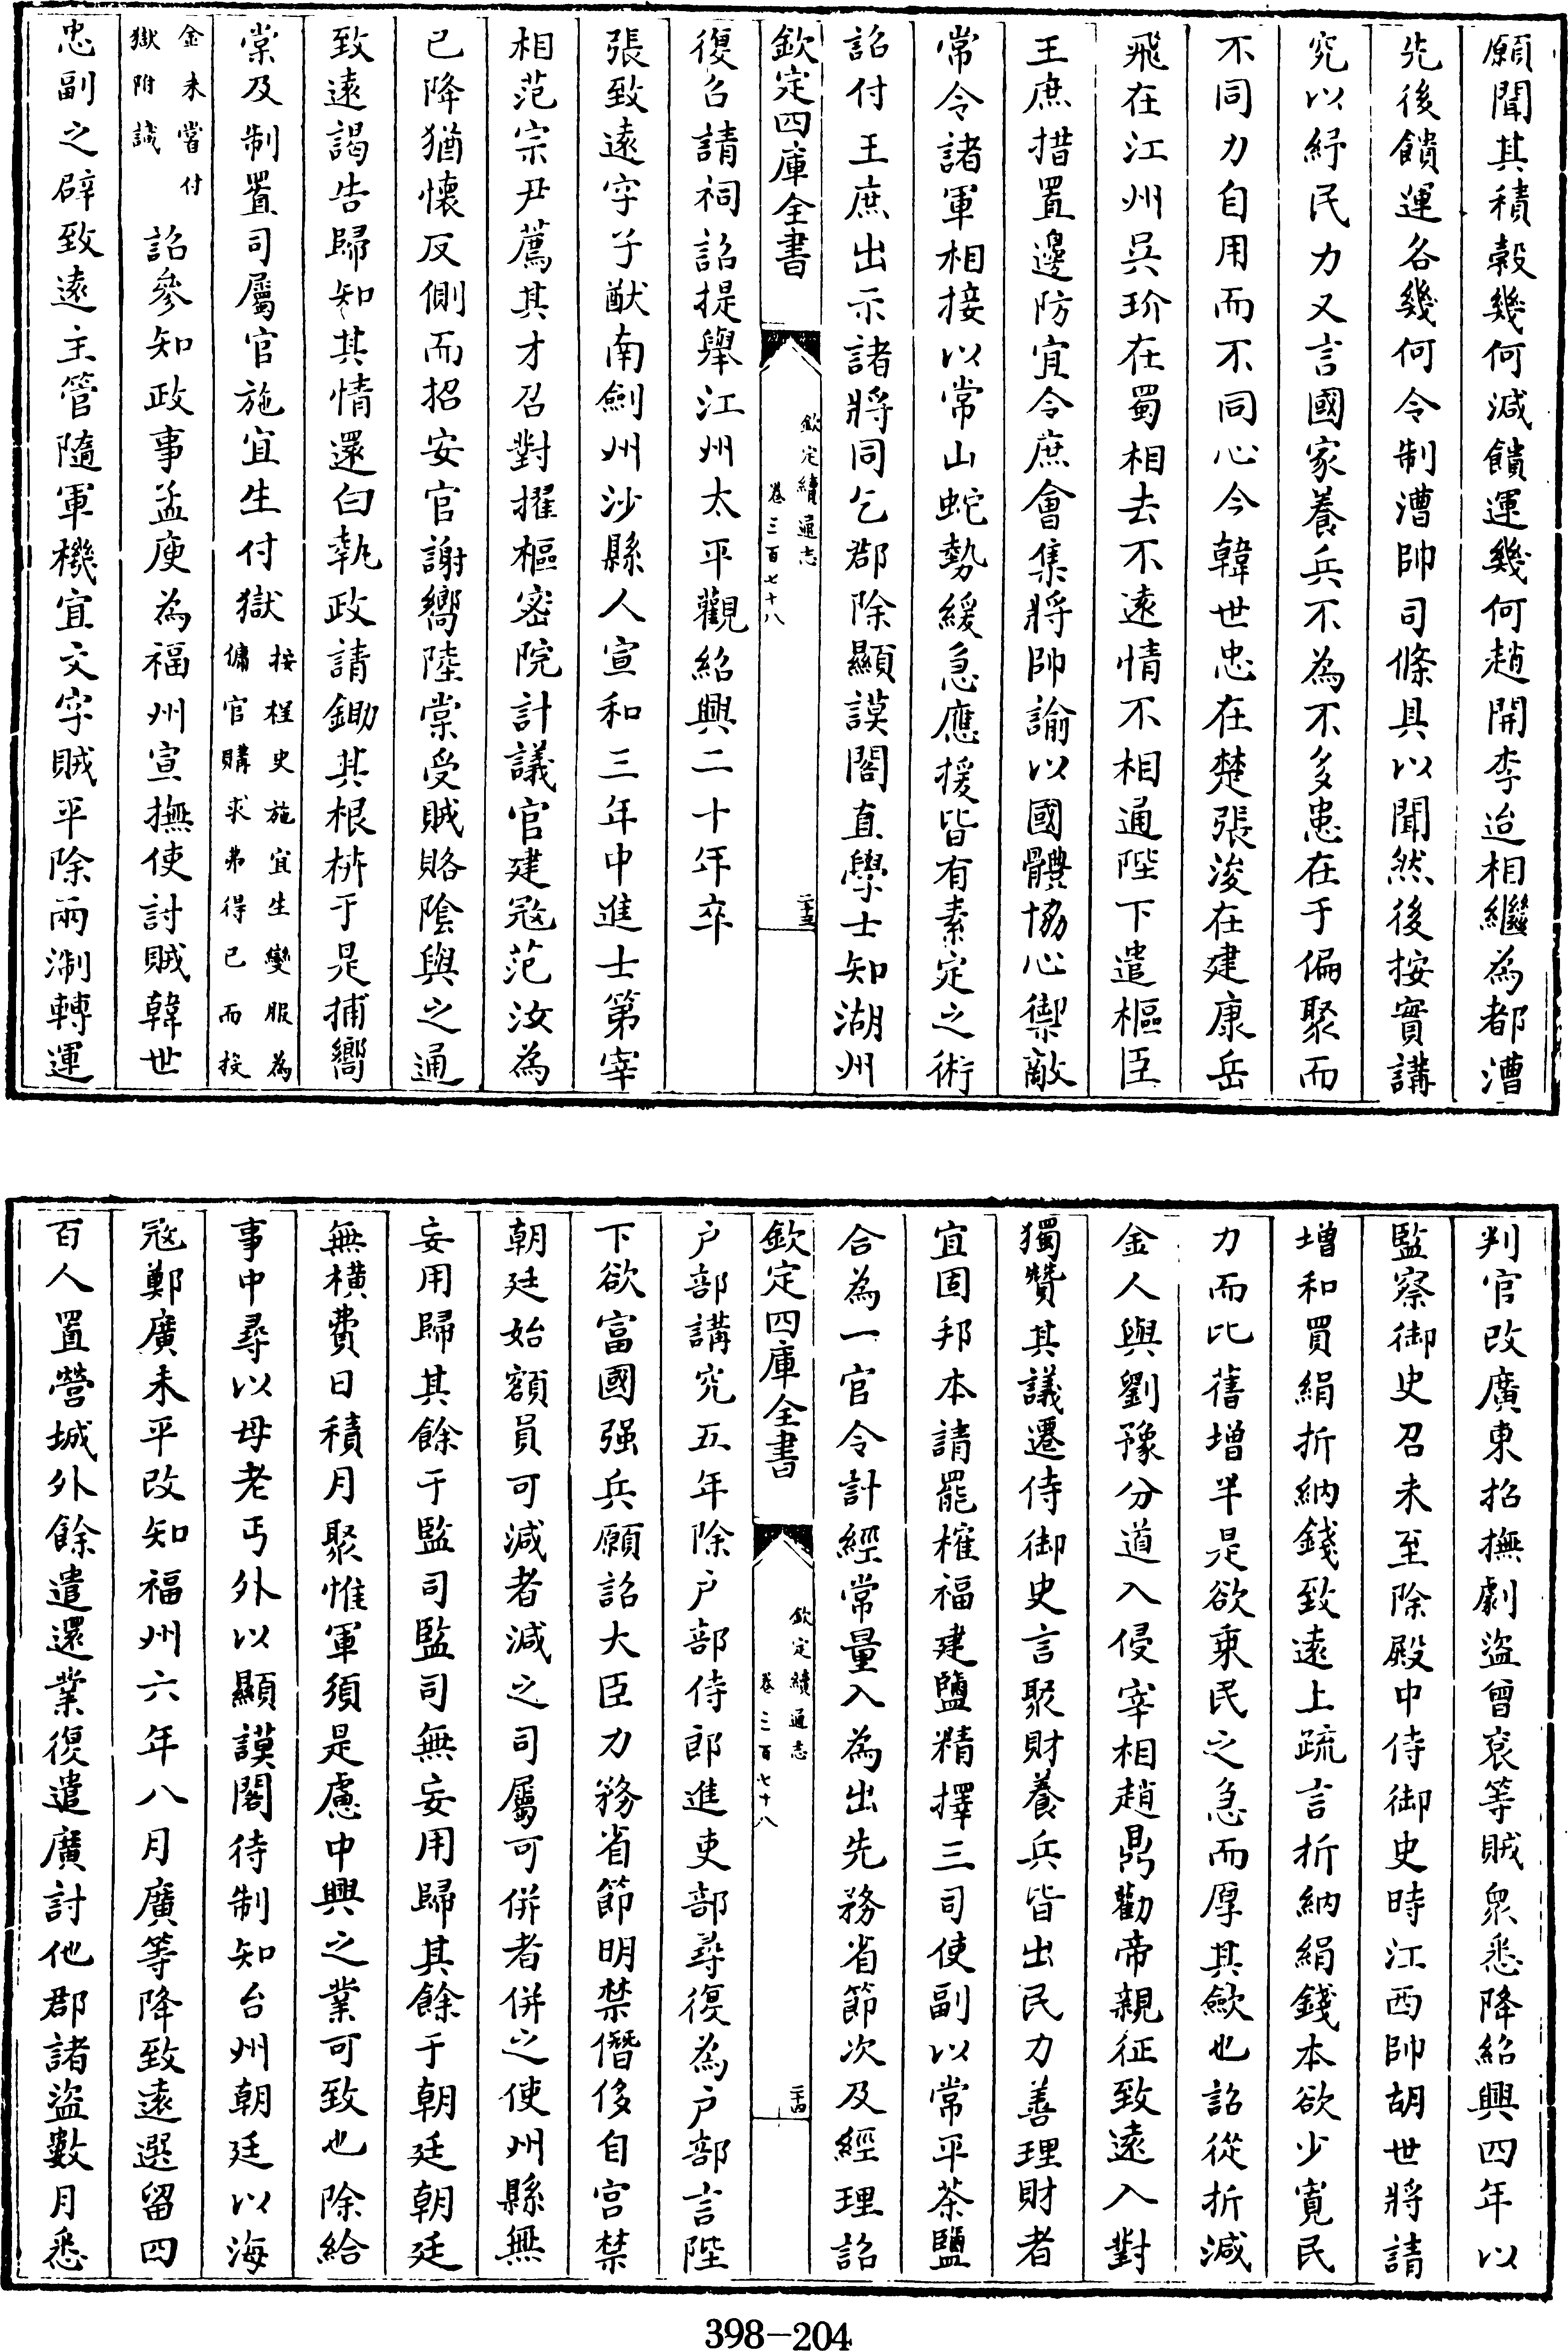 願聞其積榖幾何減饋運幾何趙開李迨相繼為都漕
先後饋運各幾何令制漕帥司條具以聞然後按實講
究以紓民力又言國家養兵不為不多患在于偏聚而
不同力自用而不同心今韓世忠在楚張浚在建康岳
飛在江州吳玠在蜀相去不遠情不相通陛下遣樞臣
王庶措置邊防宜令庶會集將帥諭以國體協心禦敵
常令諸軍相接以常山蛇勢緩急應援皆有素定之術
詔付王庶出示諸將同乞郡除顯謨閣直學士知湖州
欽定四庫全書
欽定續通志
卷三百七十八
二十五
復召請祠詔提舉江州太平觀紹興二十年卒
張致遠字子猷南劍州沙縣人宣和三年中進士第宰
相范宗尹薦其才召對擢樞密院計議官建冦范汝為
已降猶懷反側而招安官謝嚮陸棠受賊賂陰與之通
致遠謁告歸知其情還白執政請鋤其根枿于是捕嚮
棠及制置司屬官施宜生付獄
按桯史施宜生變服為
傭官購求弗得已而投
金未嘗付
獄附識
詔參知政事孟庾為福州宣撫使討賊韓世
忠副之辟致遠主管隨軍機宜文字賊平除兩淛轉運
判官改廣東招撫劇盜曾衮等賊衆悉降紹興四年以
監察御史召未至除殿中侍御史時江西帥胡世將請
增和買絹折納錢致遠上疏言折納絹錢本欲少寛民
力而比舊增半是欲乗民之急而厚其歛也詔從折減
金人與劉豫分道入侵宰相趙鼎勸帝親征致遠入對
獨贊其議遷侍御史言聚財養兵皆出民力善理財者
宜固邦本請罷榷福建鹽精擇三司使副以常平茶鹽
合為一官令計經常量入為出先務省節次及經理詔
欽定四庫全書
欽定續通志
卷三百七十八
二十六
户部講究五年除户部侍郎進吏部尋復為户部言陛
下欲富國强兵願詔大臣力務省節明禁僭侈自宫禁
朝廷始額員可減者減之司屬可併者併之使州縣無
妄用歸其餘于監司監司無妄用歸其餘于朝廷朝廷
無横費日積月聚惟軍須是慮中興之業可致也除給
事中尋以母老丐外以顯謨閣待制知台州朝廷以海
冦鄭廣未平改知福州六年八月廣等降致遠選留四
百人置營城外餘遣還業復遣廣討他郡諸盜數月悉
398-204